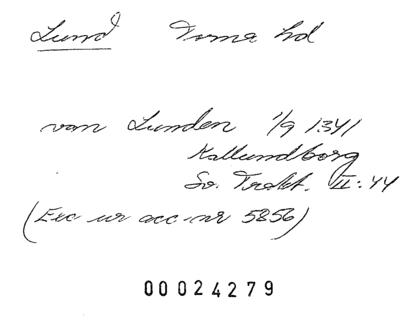 Lund Torna hd
van Lunden 1/9 1341
Kallundborg
Sv. Trakt. II: 44
(Exc ur acc-nr 5856)
00024279